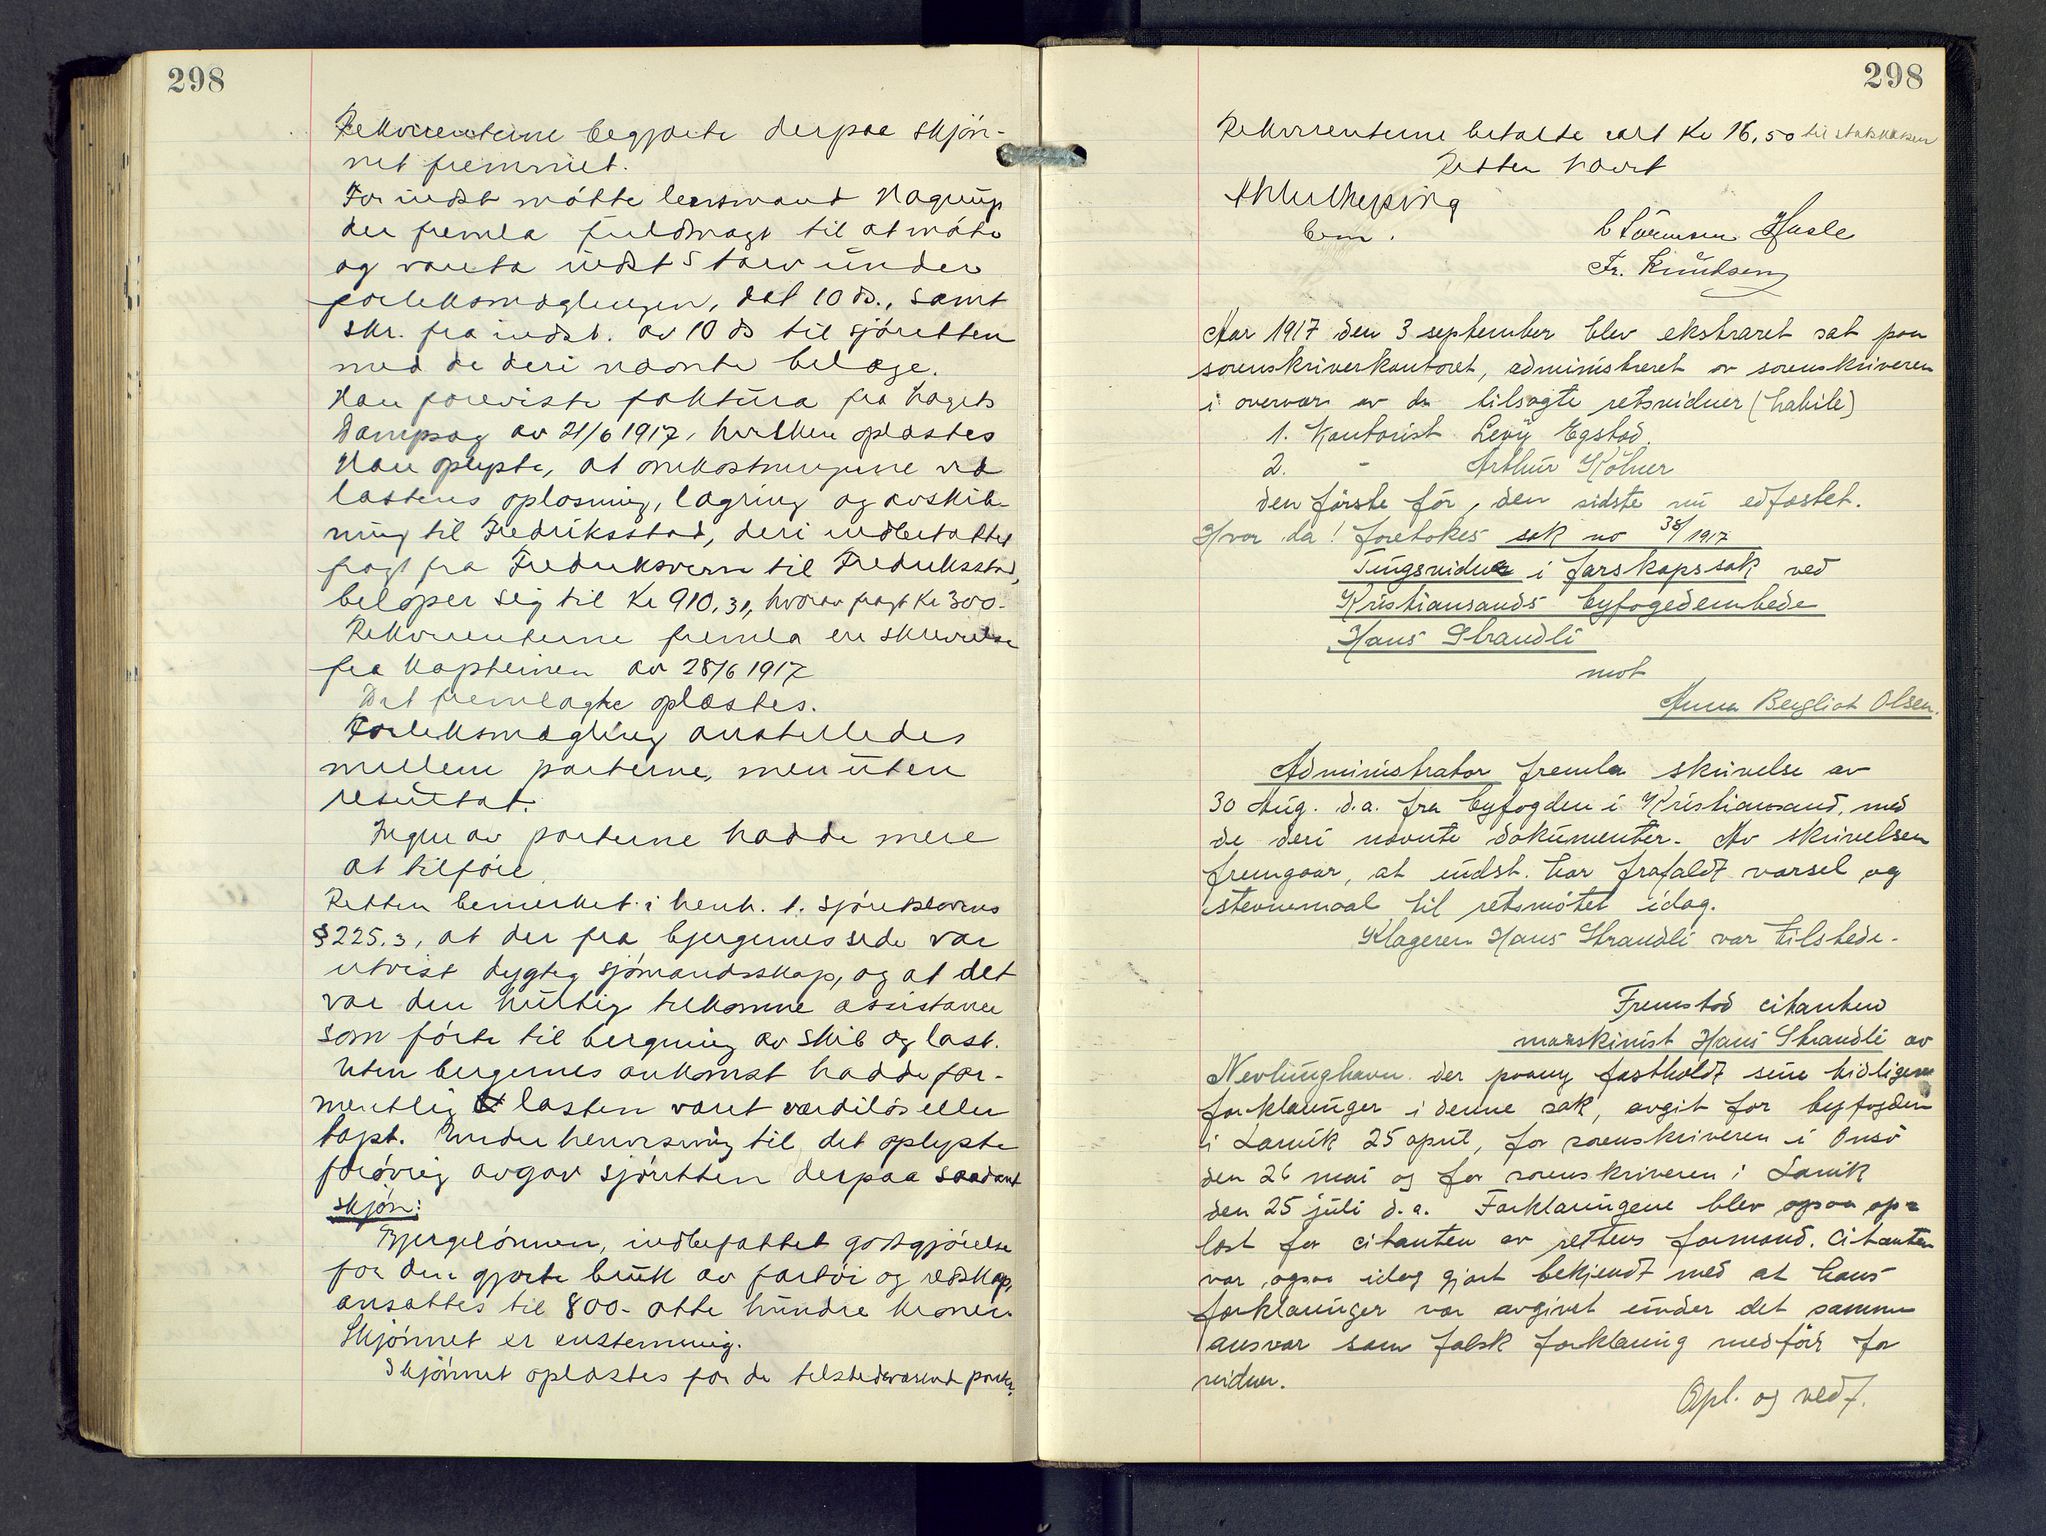 298
Rekvirenterne begjærte derpaa skjön-
net fremmet.
For indst mötte lensmand Hagrup
der fremla fuldmagt til at möte
og vareta indst's tarv under
forliksmæglingen, dat 10 ds., samt
skr. fra indst. av 10 ds til sjöretten
med de deri nævnte belæge.
Han foreviste faktura fra Lagets
Dampsag av 21/6 1917, hvilken oplæstes
Han oplyste, at omkostningerne ved
lastens oplosning, lagring og avskib-
ning til Fredriksstad, deri indbefattet
fragt fra Fredriksvern til Fredriksstad,
belöper sig til Kr 910,31, hvorav fragt Kr 300.-
Rekvirenterne fremla en skrivelse
fra Kapteinen av 28/6 1917
Det fremlagte oplæstes.
Forliksmægling anstilledes
mellem parterne, men uten
resultat.
Ingen av parterne hadde mere
at tilföie.
Retten bemerket i henh. t. sjöretslovens
§ 225.3, at der fra bjergernes side var
utvist dygtig sjömandsskap, og at det
var den hurtig tilkomne assistance
som förte til bergning av skib og last.
Uten bergernes ankomst hadde for-
mentlig lasten været værdilös eller
tapt. Under henvisning til det oplyste
forövrig avgav sjöretten derpaa saadant
skjön:
Bjergelönnen, indbefattet godtgjörelse
for den gjorte bruk av fartöi og redskap,
ansattes til 800.- otte hundre kroner.
Skjönnet er enstemmig.
Skjönnet oplæstes for de tilstedeværende parter.
298
Rekvirenterne betalte Kr 16,50 til statskassen
Retten hævet
C Sörensen Hasle
Fr. Knudsen
Aar 1917 den 3 september blev ekstraret sat paa
sorenskriverkontoret, administreret av sorenskriveren
i overvær av de tilsagte retsvidner (habile)
1. Kontorist Levy Egstad.
2. - Arthur Köhner
den förste för, den sidste nu edfæstet.
Hvor da! foretokes sak no 38/1917
Tingsvidne i farskapssak ved
Kristiansands byfogedembede
Hans Strandli
mot
Anna Bergliot Olsen.
Administrator fremla skrivelse av
30 Aug. d.a. fra byfogden i Kristiansand, med
de deri nævnte dokumenter. Av skrivelsen
fremgaar, at indst. har frafaldt varsel og
stevnemaal til retsmötet idag.
Klageren Hans Strandli var tilstede.
Fremstod citanten
maskinist Hans Strandli av
Nevlunghavn der paany fastholdt sine tidligere
forklaringer i denne sak, avgit for byfogden
i Larvik 25 april, for sorenskriveren i Onsö
den 26 mai og for sorenskriveren i Larvik
den 25 juli d.a. Forklaringene blev ogsaa op-
læst for citanten av rettens formand. Citanten
var ogsaa idag gjort bekjendt med at hans
forklaringer var avgivet under det samme
ansvar som falsk forklaring medförer for
vidner.
Opl. og vedt.